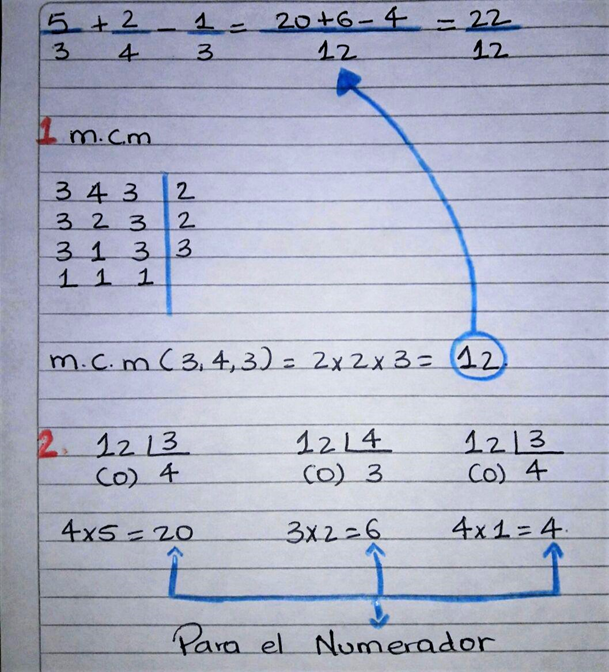 5/3 + 2/4 - 1/3 = 20+6-4/12 = 22/12
1 m.c.m
3 4 3 | 2
3 2 3 | 2
3 1 3 | 3
1 1 1 |
m.c.m (3,4,3) = 2x2x3 = 12.
2. 12 |3 12 |4 12 |3
(0) 4 (0) 3 (0) 4
4x5=20 3x2=6 4x1=4.
Para el Numerador